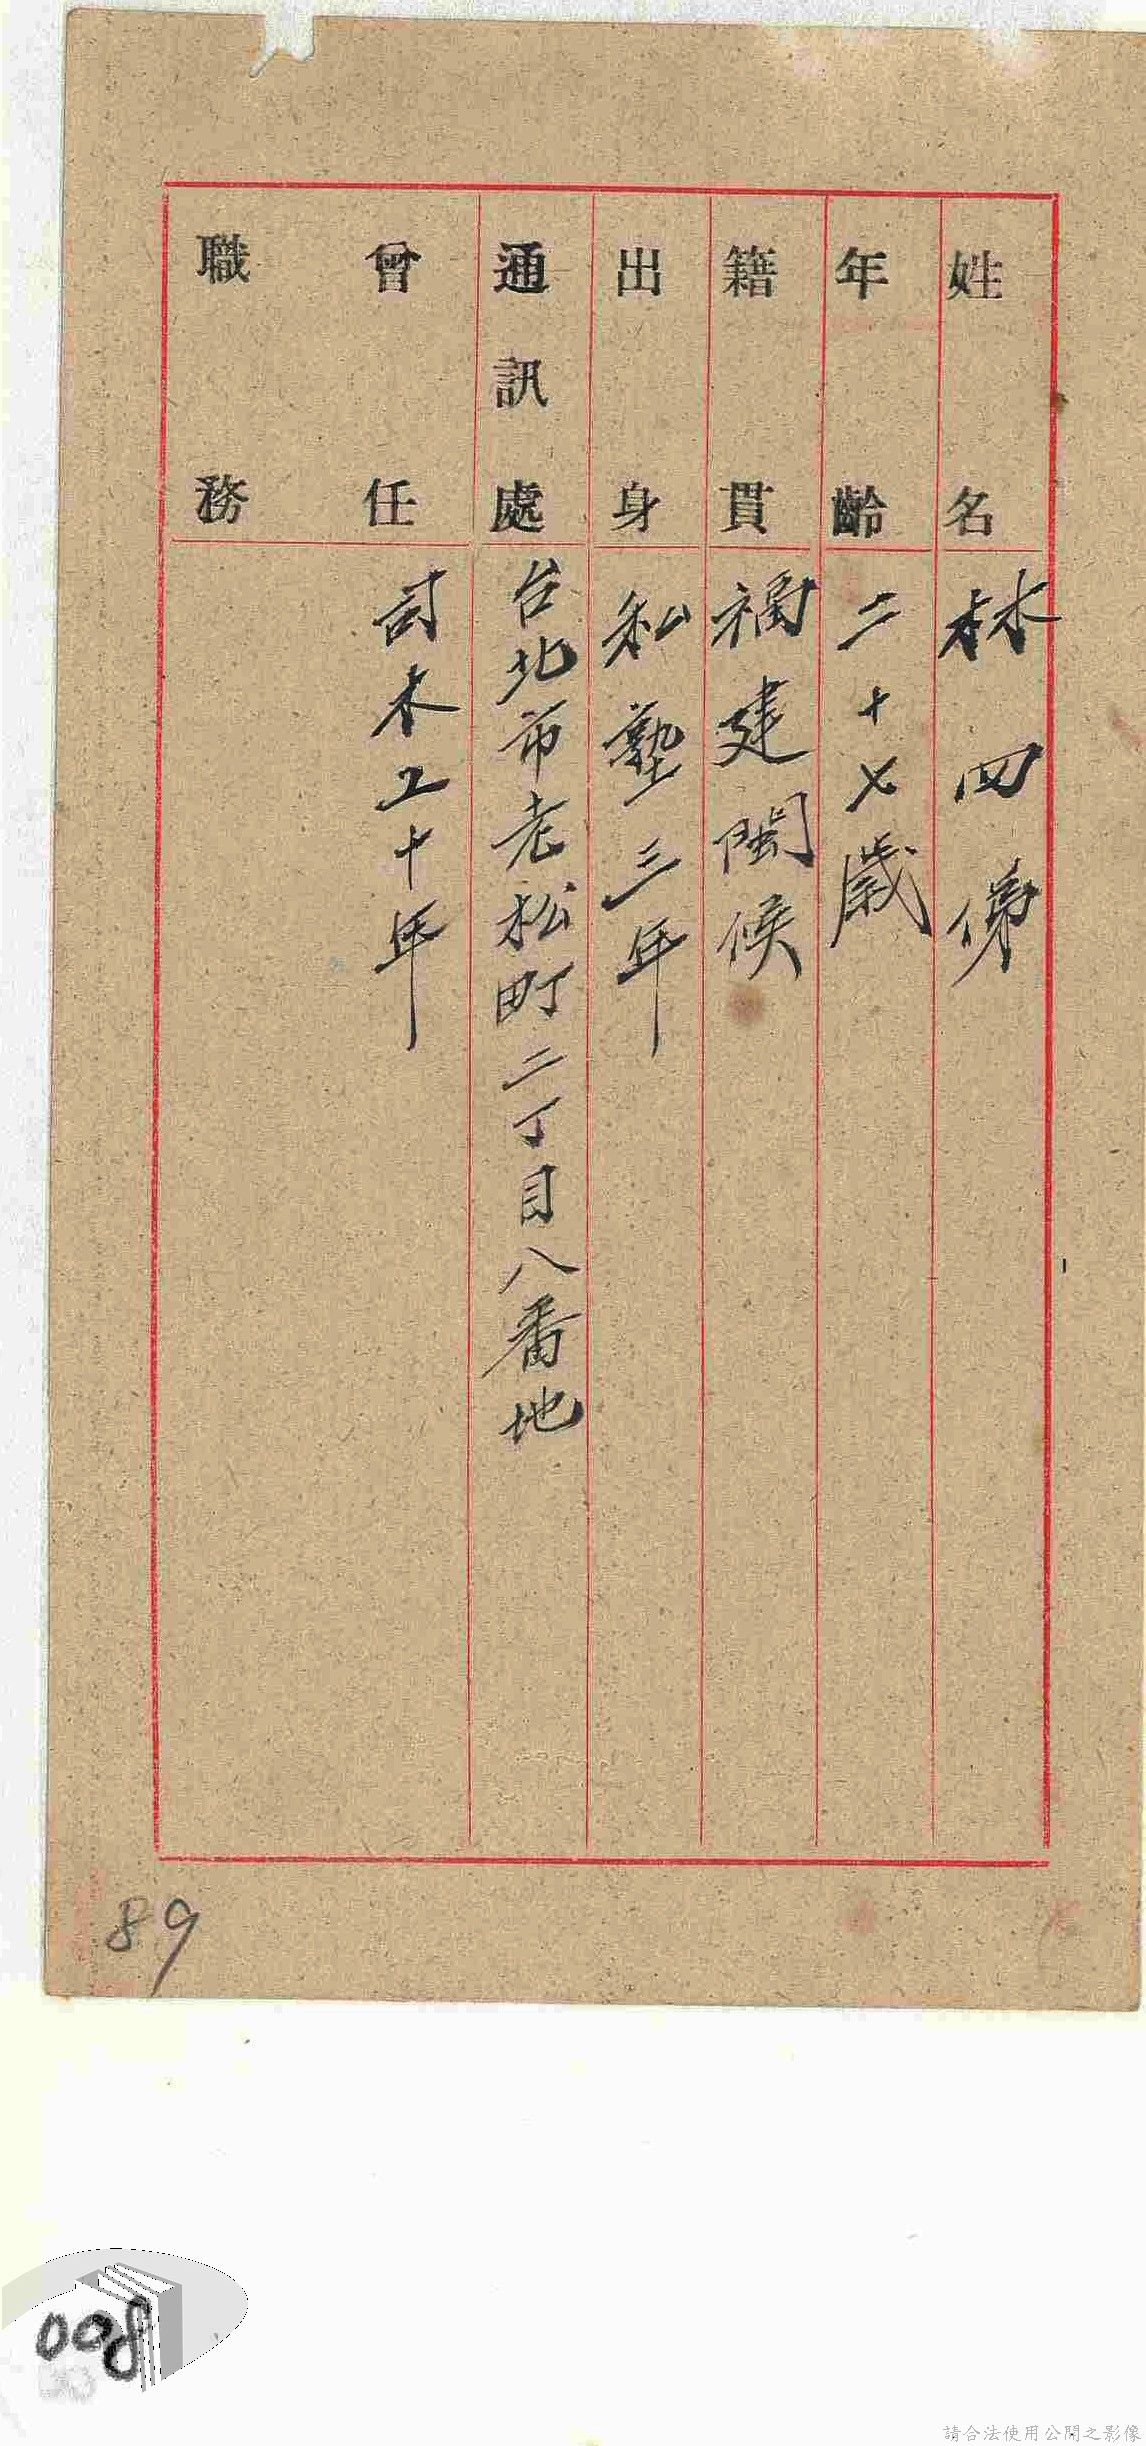 姓名 林四俤
年齡 二十七歲
籍貫 福建閩候
出身 私塾三年
通訊處 台北市老松町二丁目八番地
曾任 討木工十年
職務
89
008
請合法使用公開之影像